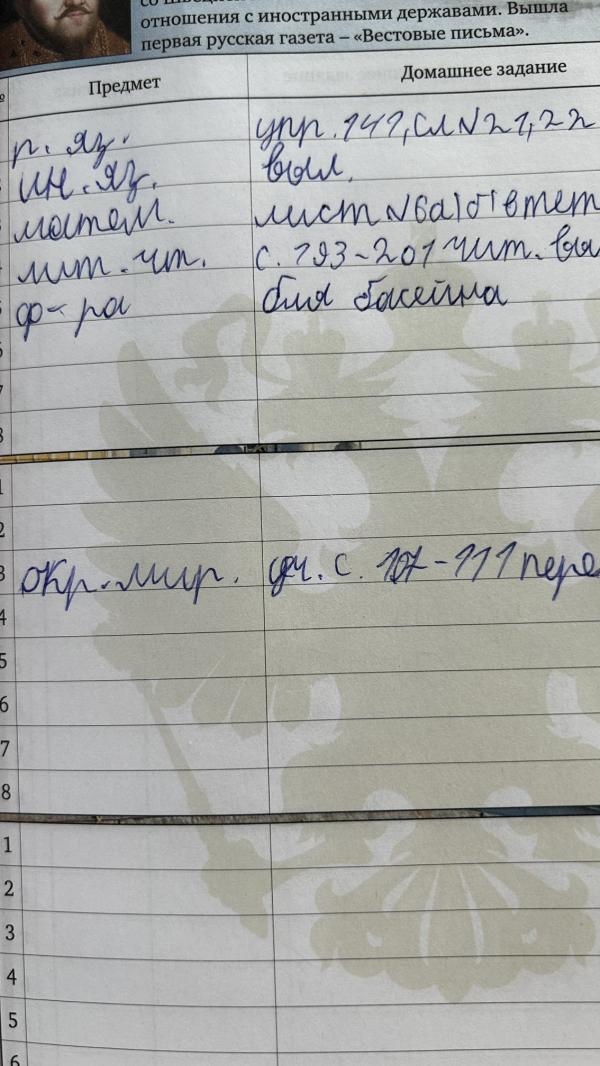 отношения с иностранными державами. Вышла
первая русская газета – «Вестовые письма».
Предмет Домашнее задание
р. яз. упр. 141, сл N 21, 22
ин. яз. выл.
матем. лист N 6а)б) в тет
лит. чт. с. 193-201 чит.
ф-ра для басейна
6
7
8
1
2
3 окр. мир. уч. с. 107-111 пере
4
5
6
7
8
1
2
3
4
5
6